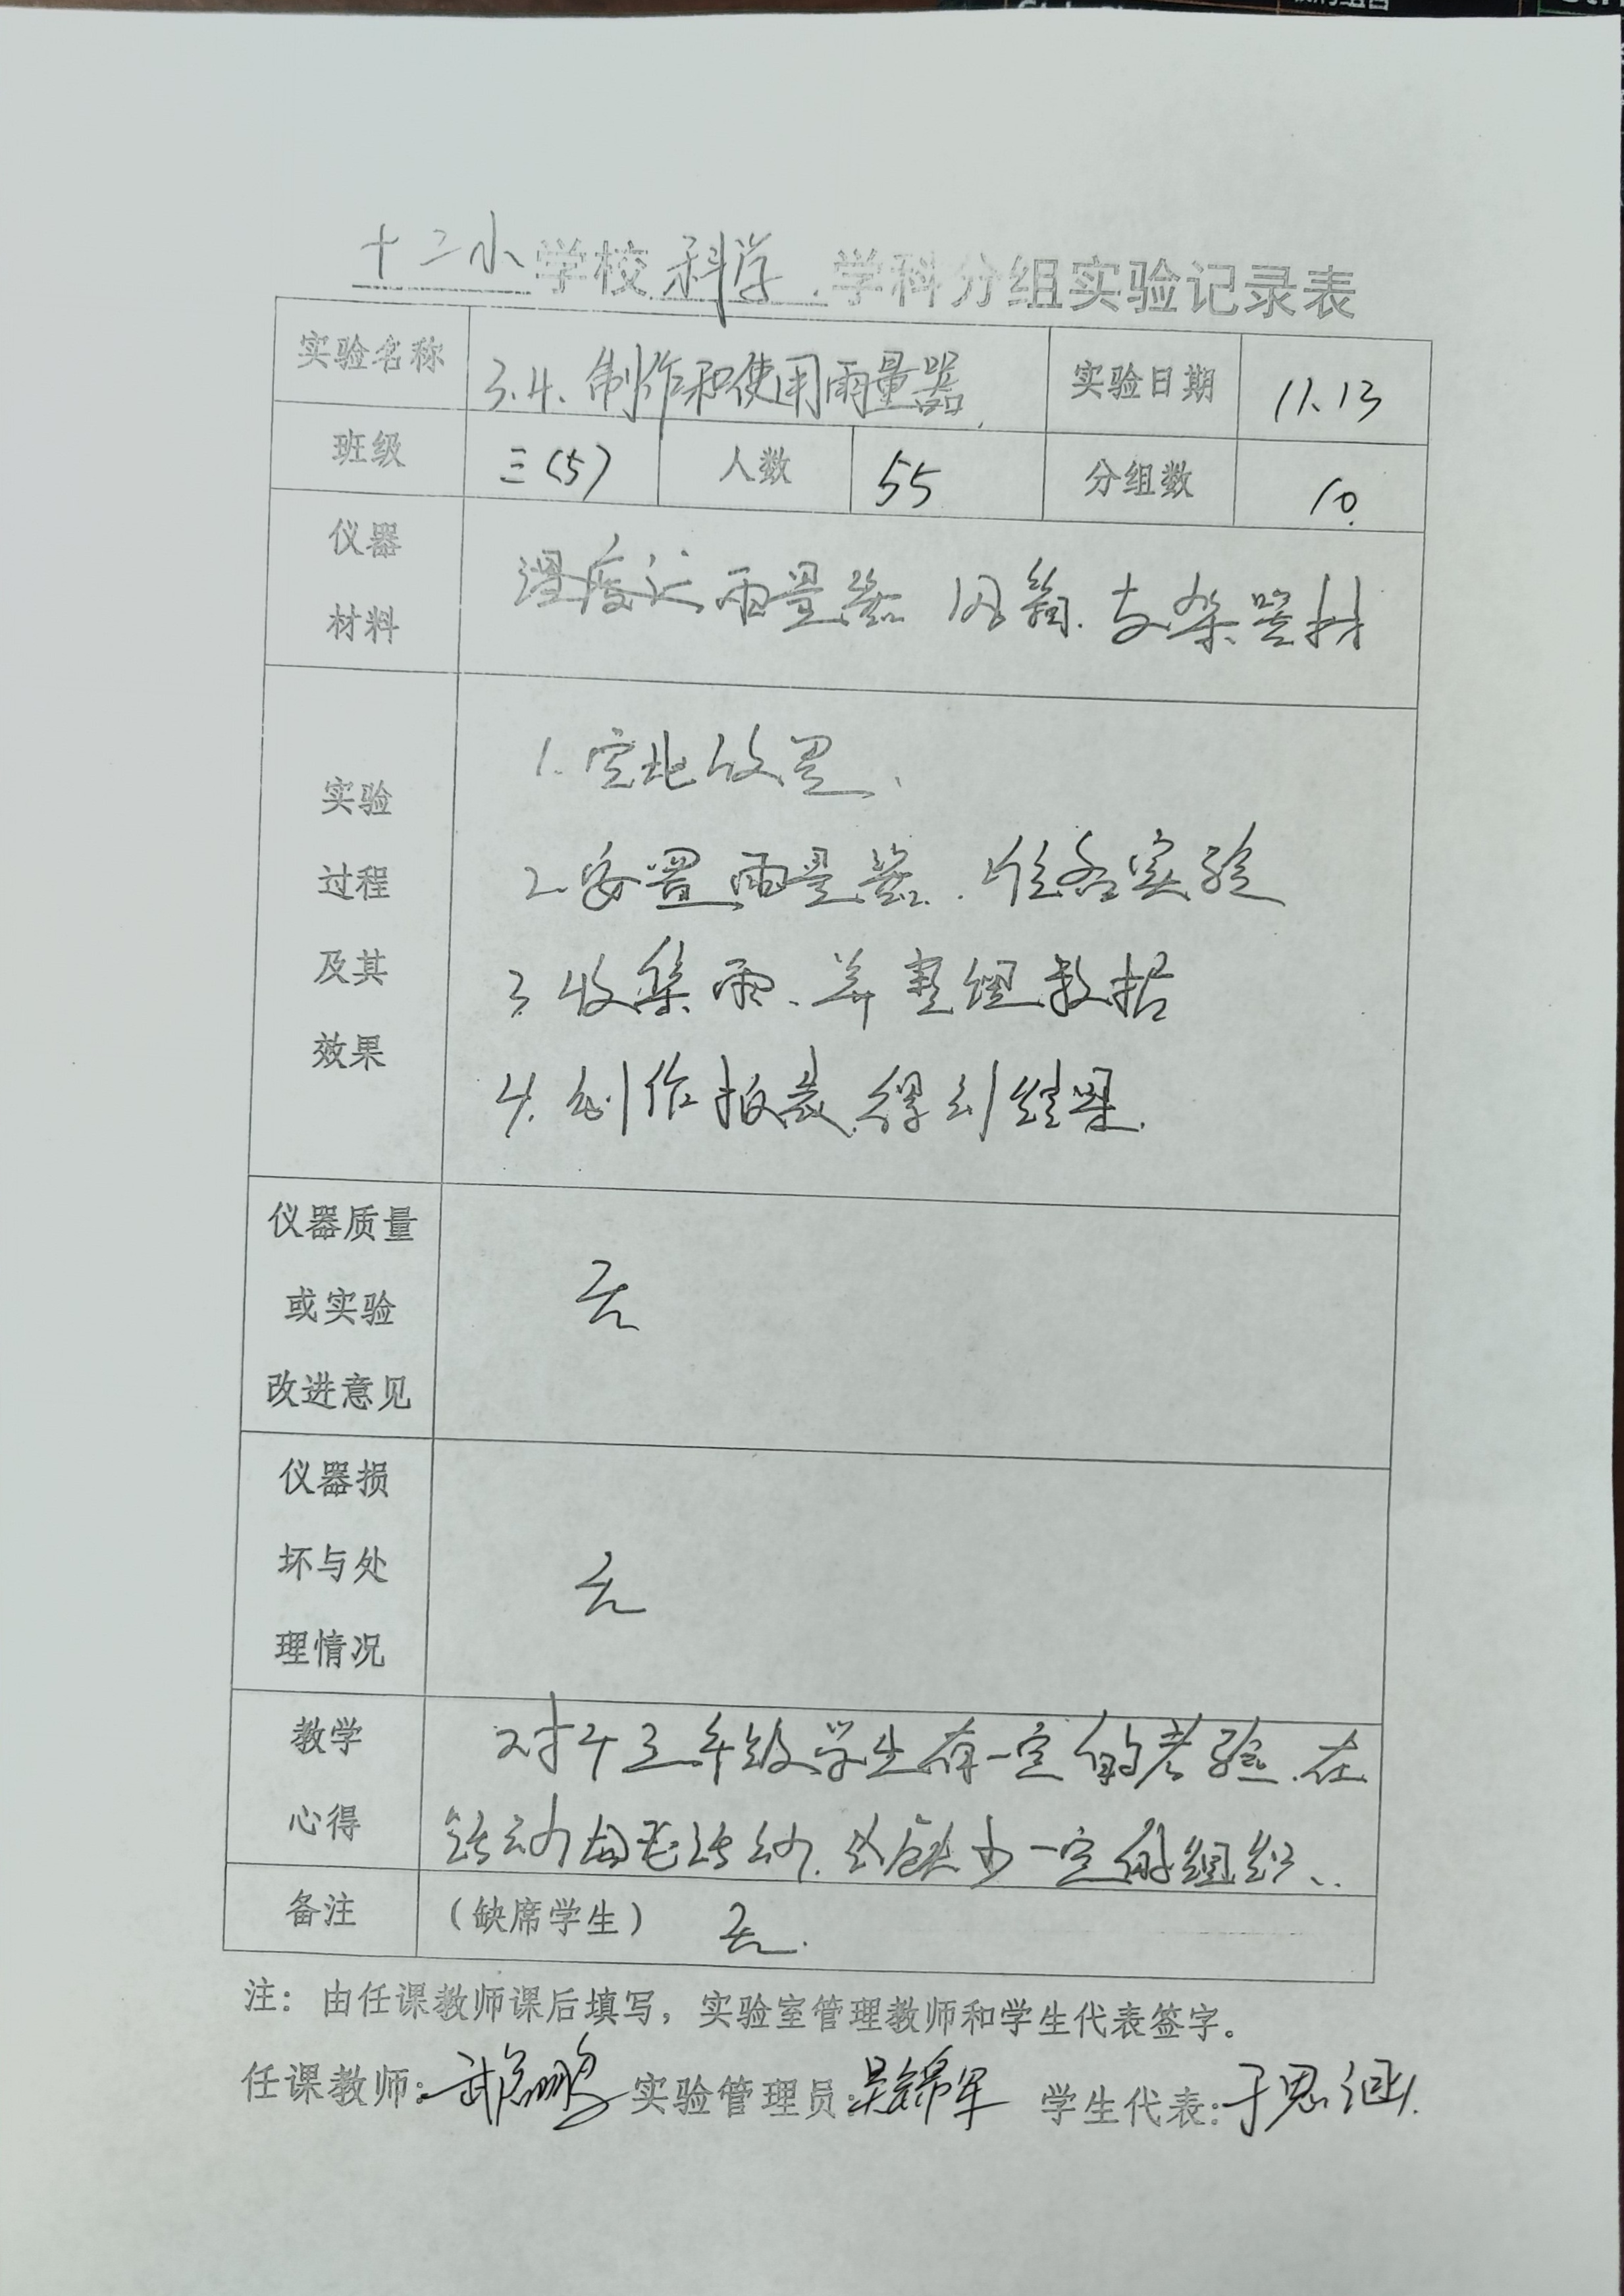 十二小学校科学学科分组实验记录表
实验名称 3.4.制作和使用雨量器 实验日期 11.13
班级 三(5) 人数 55 分组数 10
仪器
材料
温度计 雨量器 风筒.支架器材
实验
过程
及其
效果
1.空地放置、
2.安置雨量器.准备实验
3.收集雨、并整理数据
4.制作报表.得到结果.
仪器质量
或实验
改进意见
无
仪器损
坏与处
理情况
无
教学
心得
对于三年级学生有一定的考验.在
活动 活动. 缺少一定的组织、
备注 (缺席学生) 无.
注：由任课教师课后填写，实验室管理教师和学生代表签字。
任课教师: 实验管理员:吴锦军 学生代表:于思涵.